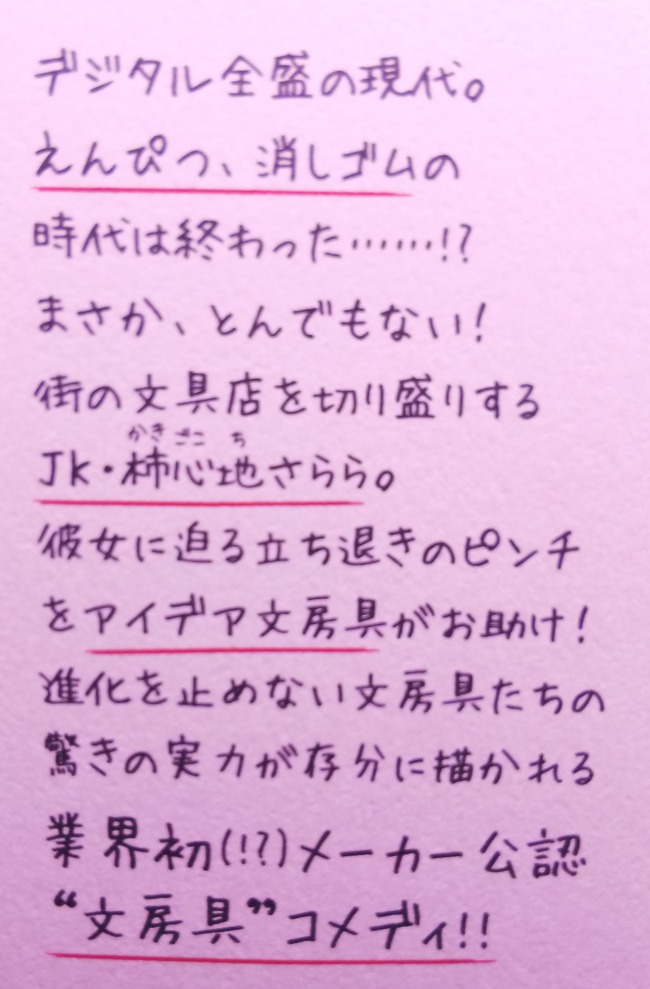 デジタル全盛の現代。
えんぴつ、消しゴムの
時代は終わった……!?
まさか、とんでもない!
街の文具店を切り盛りする
かきごこち
JK・柿心地さらら。
彼女に迫る立ち退きのピンチ
をアイデア文房具がお助け!
進化を止めない文房具たちの
驚きの実力が存分に描かれる
業界初(!?)メーカー公認
“文房具”コメディ!!